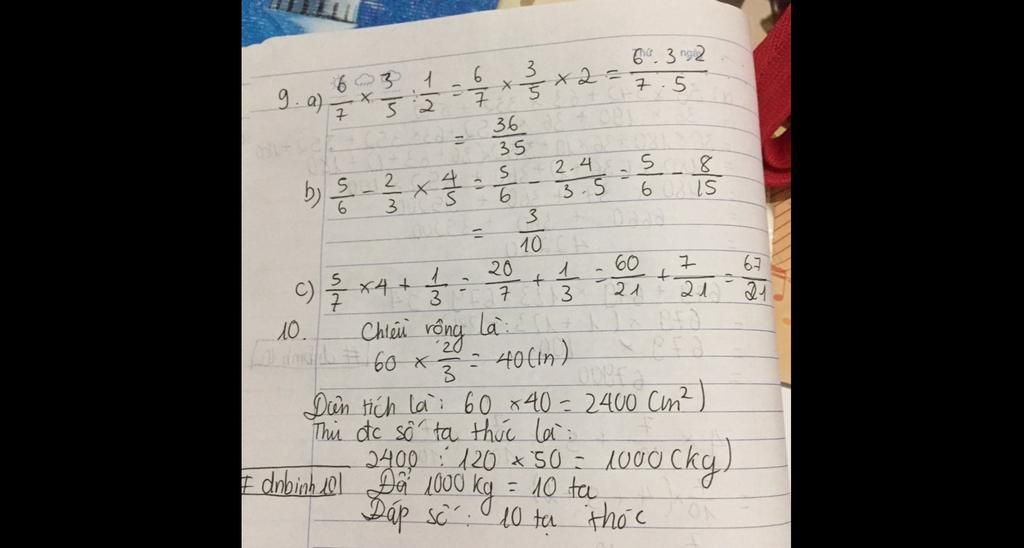 Thứ ngày
9. a) 6/7 × 3/5 : 1/2 = 6/7 × 3/5 × 2 = 6.3.2/7.5
= 36/35
b) 5/6 - 2/3 × 4/5 = 5/6 - 2.4/3.5 = 5/6 - 8/15
= 3/10
c) 5/7 × 4 + 1/3 = 20/7 + 1/3 = 60/21 + 7/21 = 67/21
10. Chiều rộng là:
60 × 20/3 = 40 (m)
Diện tích là: 60 × 40 = 2400 (m²)
Thu đc số tạ thóc là:
2400 : 120 × 50 = 1000 (kg)
# dnbinh10 Đổi 1000 kg = 10 tạ
Đáp số: 10 tạ thóc